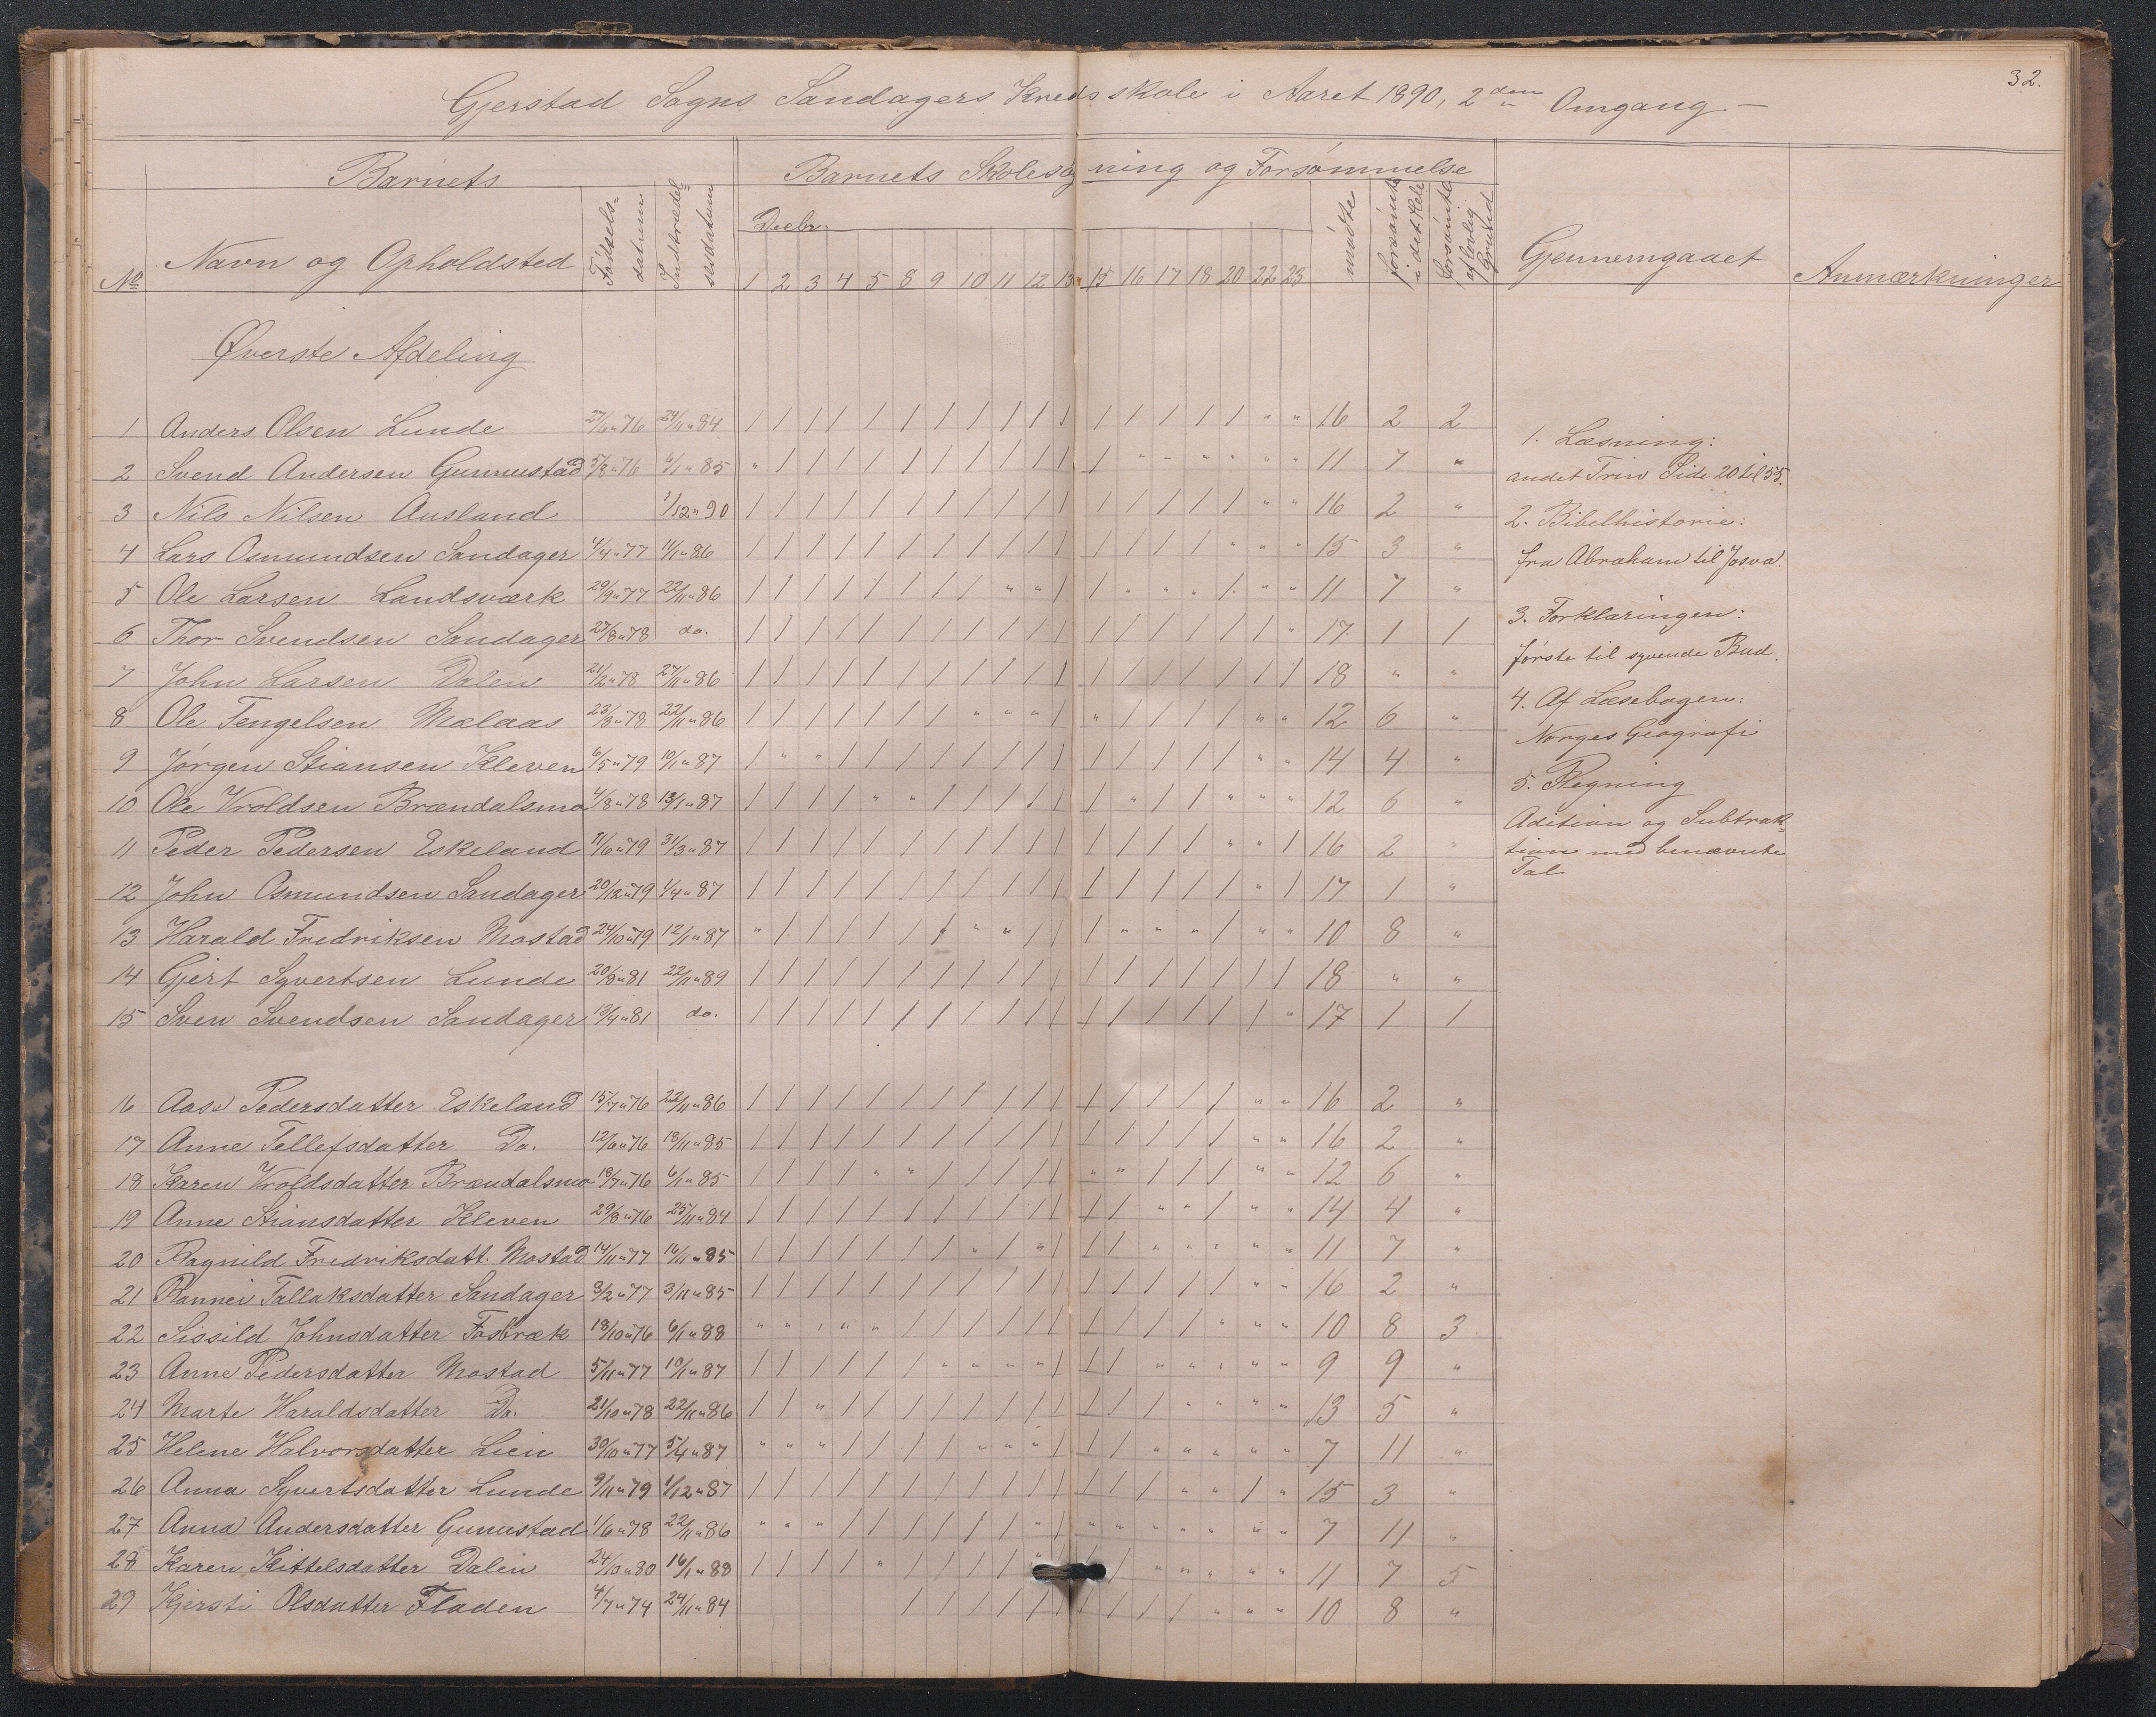 32.
Gjerstad Sogns Sandagers Kredsskole i Aaret 1890, 2den Omgang. —
Barnets
Barnets Skolesøgning og Forsømmelse
No
Navn og Opholdsted
Fødselsdatum
Indtrædelsesdatum
Decbr.
1 2 3 4 5 8 9 10 11 12 13 15 16 17 18 20 22 23
mødte
forsømte i det Hele
forsømte af lovlig Grund
Gjennemgaaet
Anmærkninger
Øverste Afdeling
1 Anders Olsen Lunde 27/6 " 76 24/11 " 84 / / / / / / / / / / / / / / / / " " 16 2 2
2 Svend Andersen Gunnustad 5/8 " 76 6/1 " 85 " / / / / / / / / / / / " " " " " " 11 7 "
3 Nils Nilsen Ausland 1/12 " 90 / / / / / / / / / / / / / / / / " " 16 2 "
4 Lars Osmundsen Sandager 4/4 " 77 11/1 " 86 / / / / / / / / / / / / / / / " " " 15 3 "
5 Ole Larsen Landsværk 29/9 " 77 22/11 " 86 / / / / / / / / " " / / " " " / " " 11 7 "
6 Thor Svendsen Sandager 27/8 " 78 do. / / / / / / / / / / / / / / / / / " 17 1 1
7 John Larsen Dalen 21/2 " 78 27/11 " 86 / / / / / / / / / / / / / / / / / / 18 " "
8 Ole Tengelsen Mælaas 23/8 " 78 22/11 " 86 / / / / / / / " " " / " / / / / " " 12 6 "
9 Jørgen Stiansen Kleven 6/5 " 79 10/1 " 87 / " " / / / / / / / / / / / / / " " 14 4 "
10 Ole Vroldsen Brændalsmo 4/8 " 78 13/1 " 87 / / / / " " / / / / / / " / / " " " 12 6 "
11 Peder Pedersen Eskeland 11/6 " 79 31/3 " 87 / / / / / / / / / / / / / / / " " / 16 2 "
12 John Osmundsen Sandager 20/12 " 79 1/4 " 87 / / / / / / / / / / / / / / / / " / 17 1 "
13 Harald Fredriksen Mostad 24/10 " 79 12/1 " 87 " / / / / / / " " / / / " " " / " " 10 8 "
14 Gjert Syvertsen Lunde 20/8 " 81 22/11 " 89 / / / / / / / / / / / / / / / / / / 18 " "
15 Sven Svendsen Sandager 19/4 " 81 do. / / / / / / / / / / / / / / / / / " 17 1 1
16 Aase Pedersdatter Eskeland 15/7 " 76 22/11 " 86 / / / / / / / / / / / / / / / / " " 16 2 "
17 Anne Tellefsdatter Do. 12/6 " 76 18/11 " 85 / / / / / / / / / / / / / / / / " " 16 2 "
18 Karen Vroldsdatter Brændalsmo 18/7 " 76 6/1 " 85 / / / / " " / / / / / " " / / / " " 12 6 "
19 Anne Stiansdatter Kleven 29/8 " 76 25/11 " 84 / / / / / / / / / / / / / " " / " " 14 4 "
20 Ragnild Fredriksdatt. Mostad 14/11 " 77 16/11 " 85 / / / / / / / " / " / / / " " " " " 11 7 "
21 Rannei Tallaksdatter Sandager 3/2 " 77 3/11 " 85 / / / / / / / / / / / / / / / / " " 16 2 "
22 Sissild Johnsdatter Fosbræk 18/10 " 76 6/1 " 88 " " " " " / / / / / / / / / / " " " 10 8 3
23 Anne Pedersdatter Mostad 5/11 " 77 10/1 " 87 / / / / / / " " " " / / / " " " " " 9 9 "
24 Marte Haraldsdatter Do. 21/10 " 78 22/11 " 86 / / " / / / / / / / / / / / " " " " 13 5 "
25 Helene Halvorsdatter Lien 30/10 " 77 5/4 " 87 " " " / / / / " " " / / / " " " " " 7 11 "
26 Anna Syvertsdatter Lunde 9/11 " 79 1/12 " 87 / / / / / / / / / / / / / / " " / " 15 3 "
27 Anna Andersdatter Gunnustad 1/6 " 78 22/11 " 86 " " " / / / / / / " / " " " " " " " 7 11 "
28 Karen Kittelsdatter Dalen 24/10 " 80 16/1 " 88 / / / / " / / / / " / / " " " " " 11 7 5
29 Kjersti Olsdatter Fladen 4/7 " 74 24/11 " 84 / / / / / / / / / / " " " 10 8 "
1. Læsning:
andet Trin Side 20 til 55.
2. Bibelhistorie:
fra Abraham til Josva.
3. Forklaringen:
første til syvende Bud.
4. Af Læsebogen:
Norges Geografi
5. Regning
Adition og Subtrak-
tion med benævnte
Tal